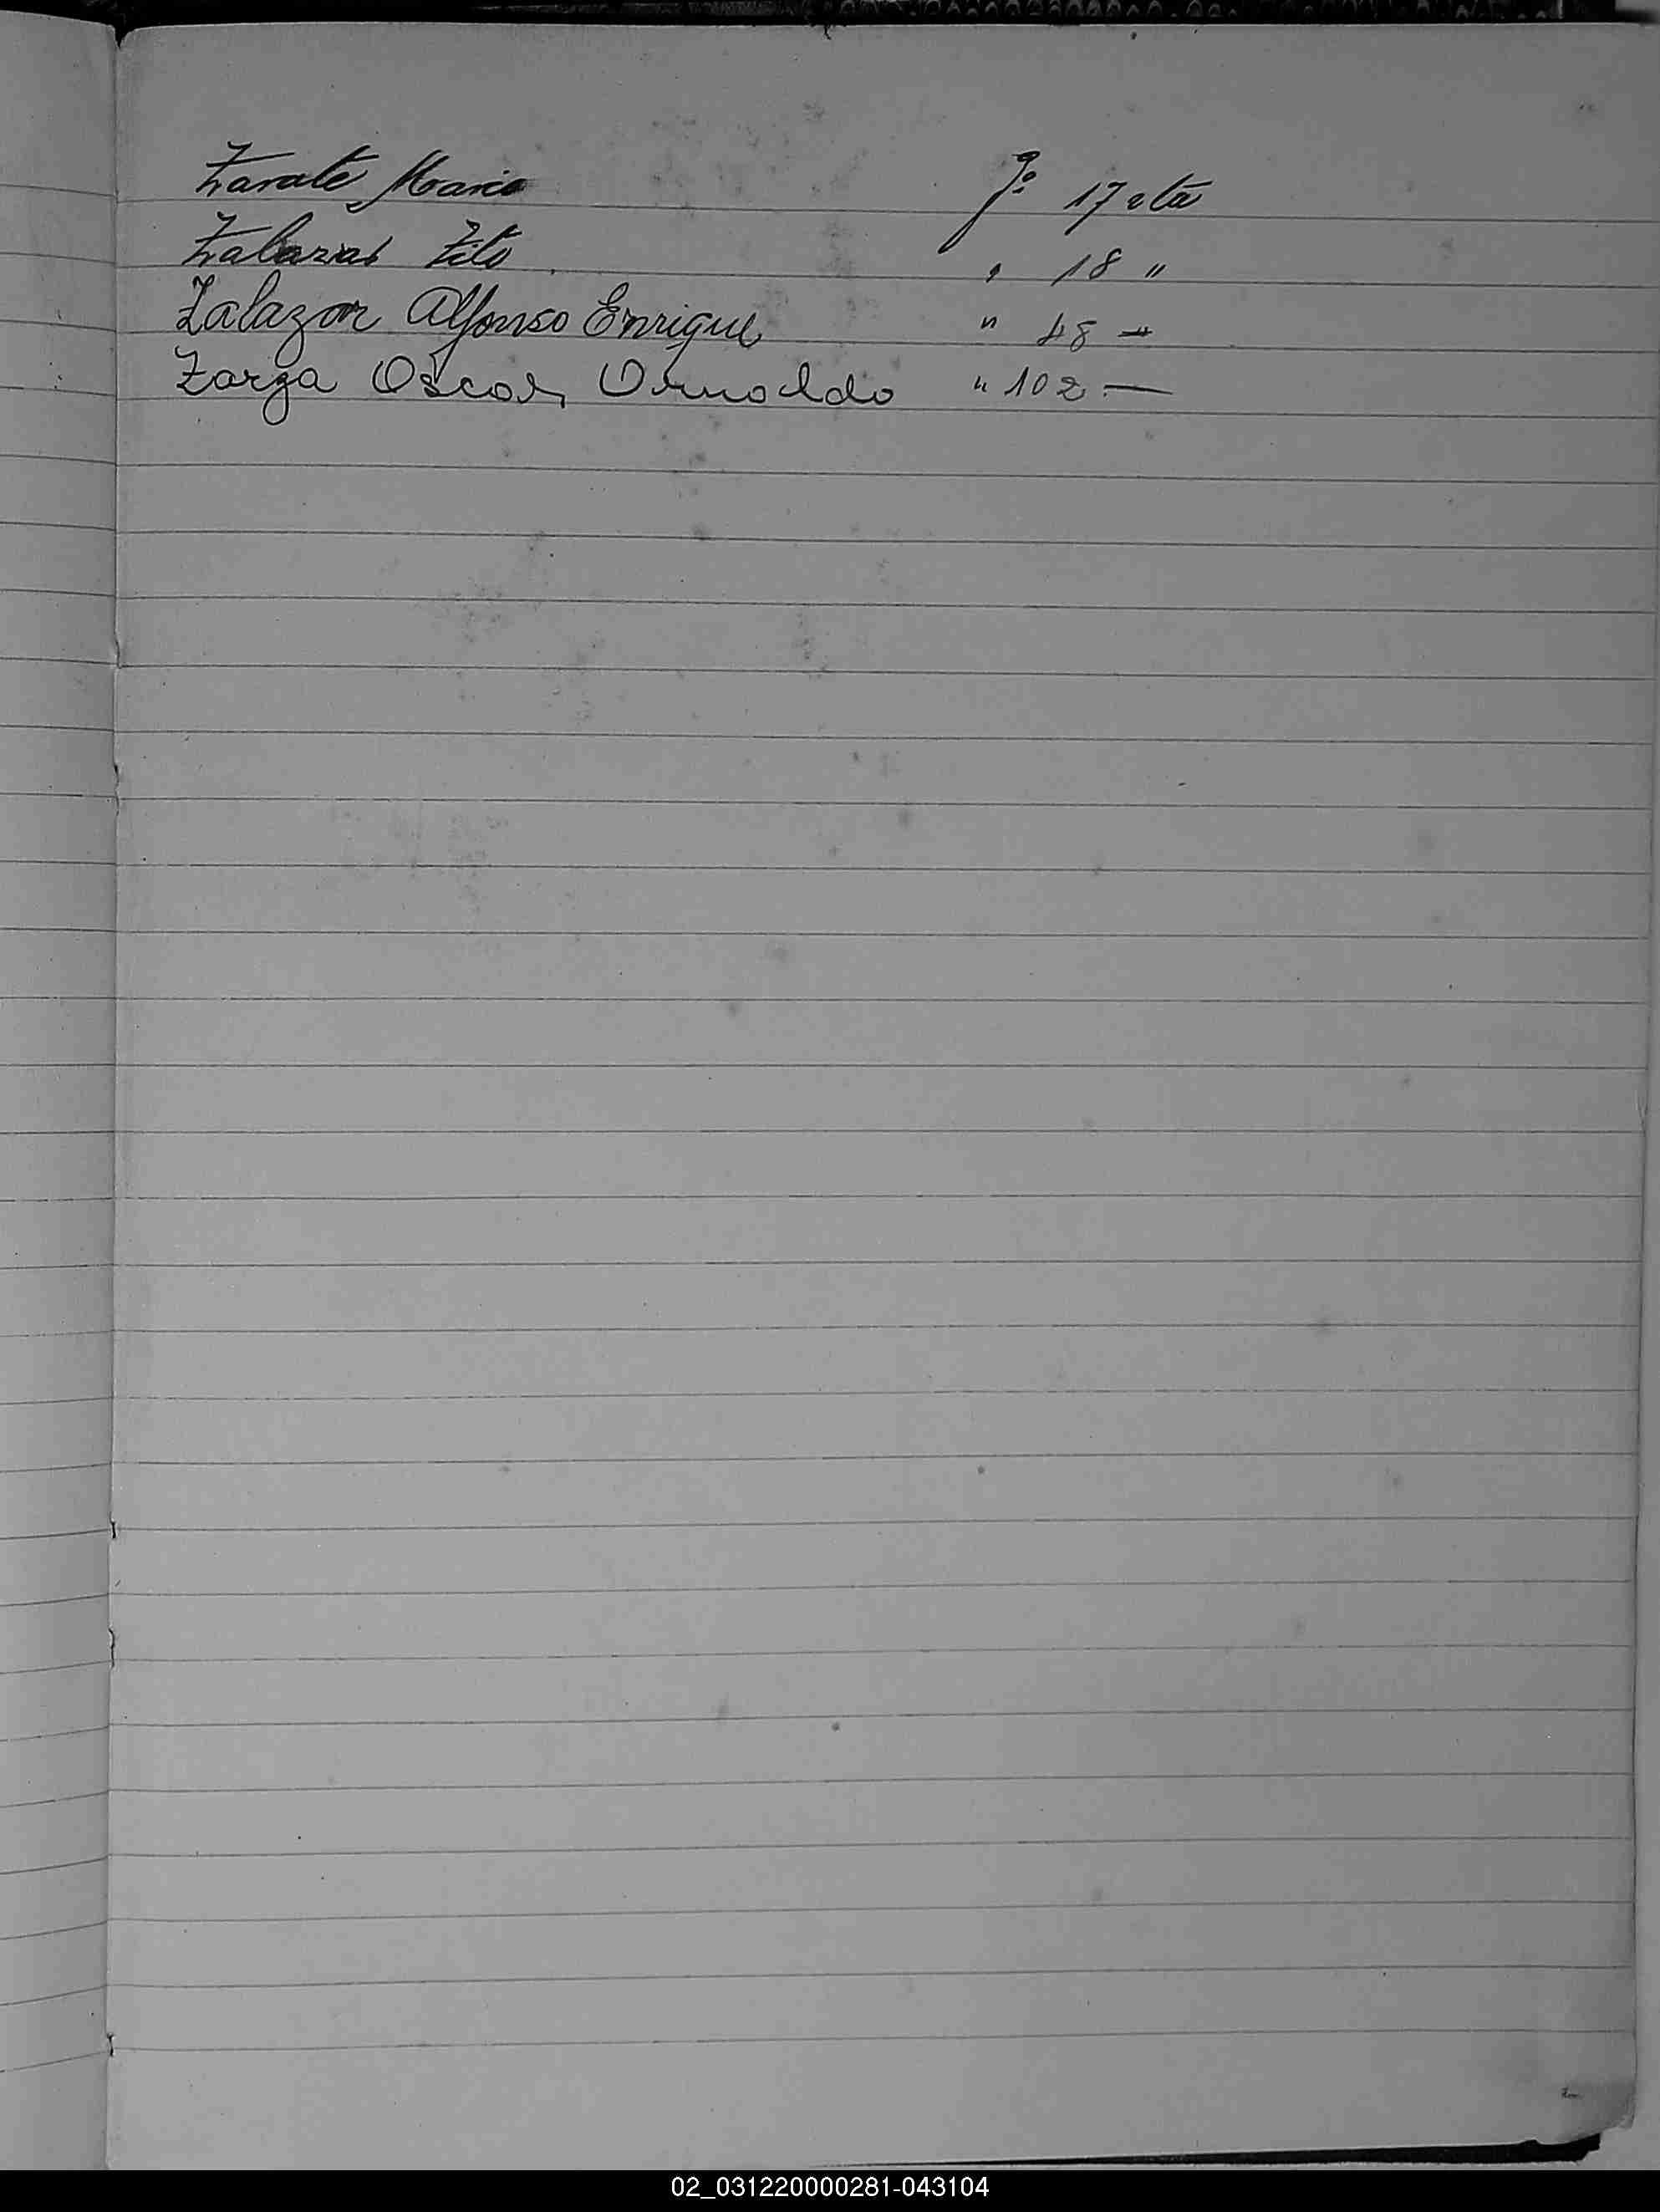 Zarate Mario Fº 17 vta
Zalazar Tito " 18 "
Zalazar Alfonso Enrique " 48 —
Zarza Oscar Osmaldo " 102 —
02_031220000281-043104